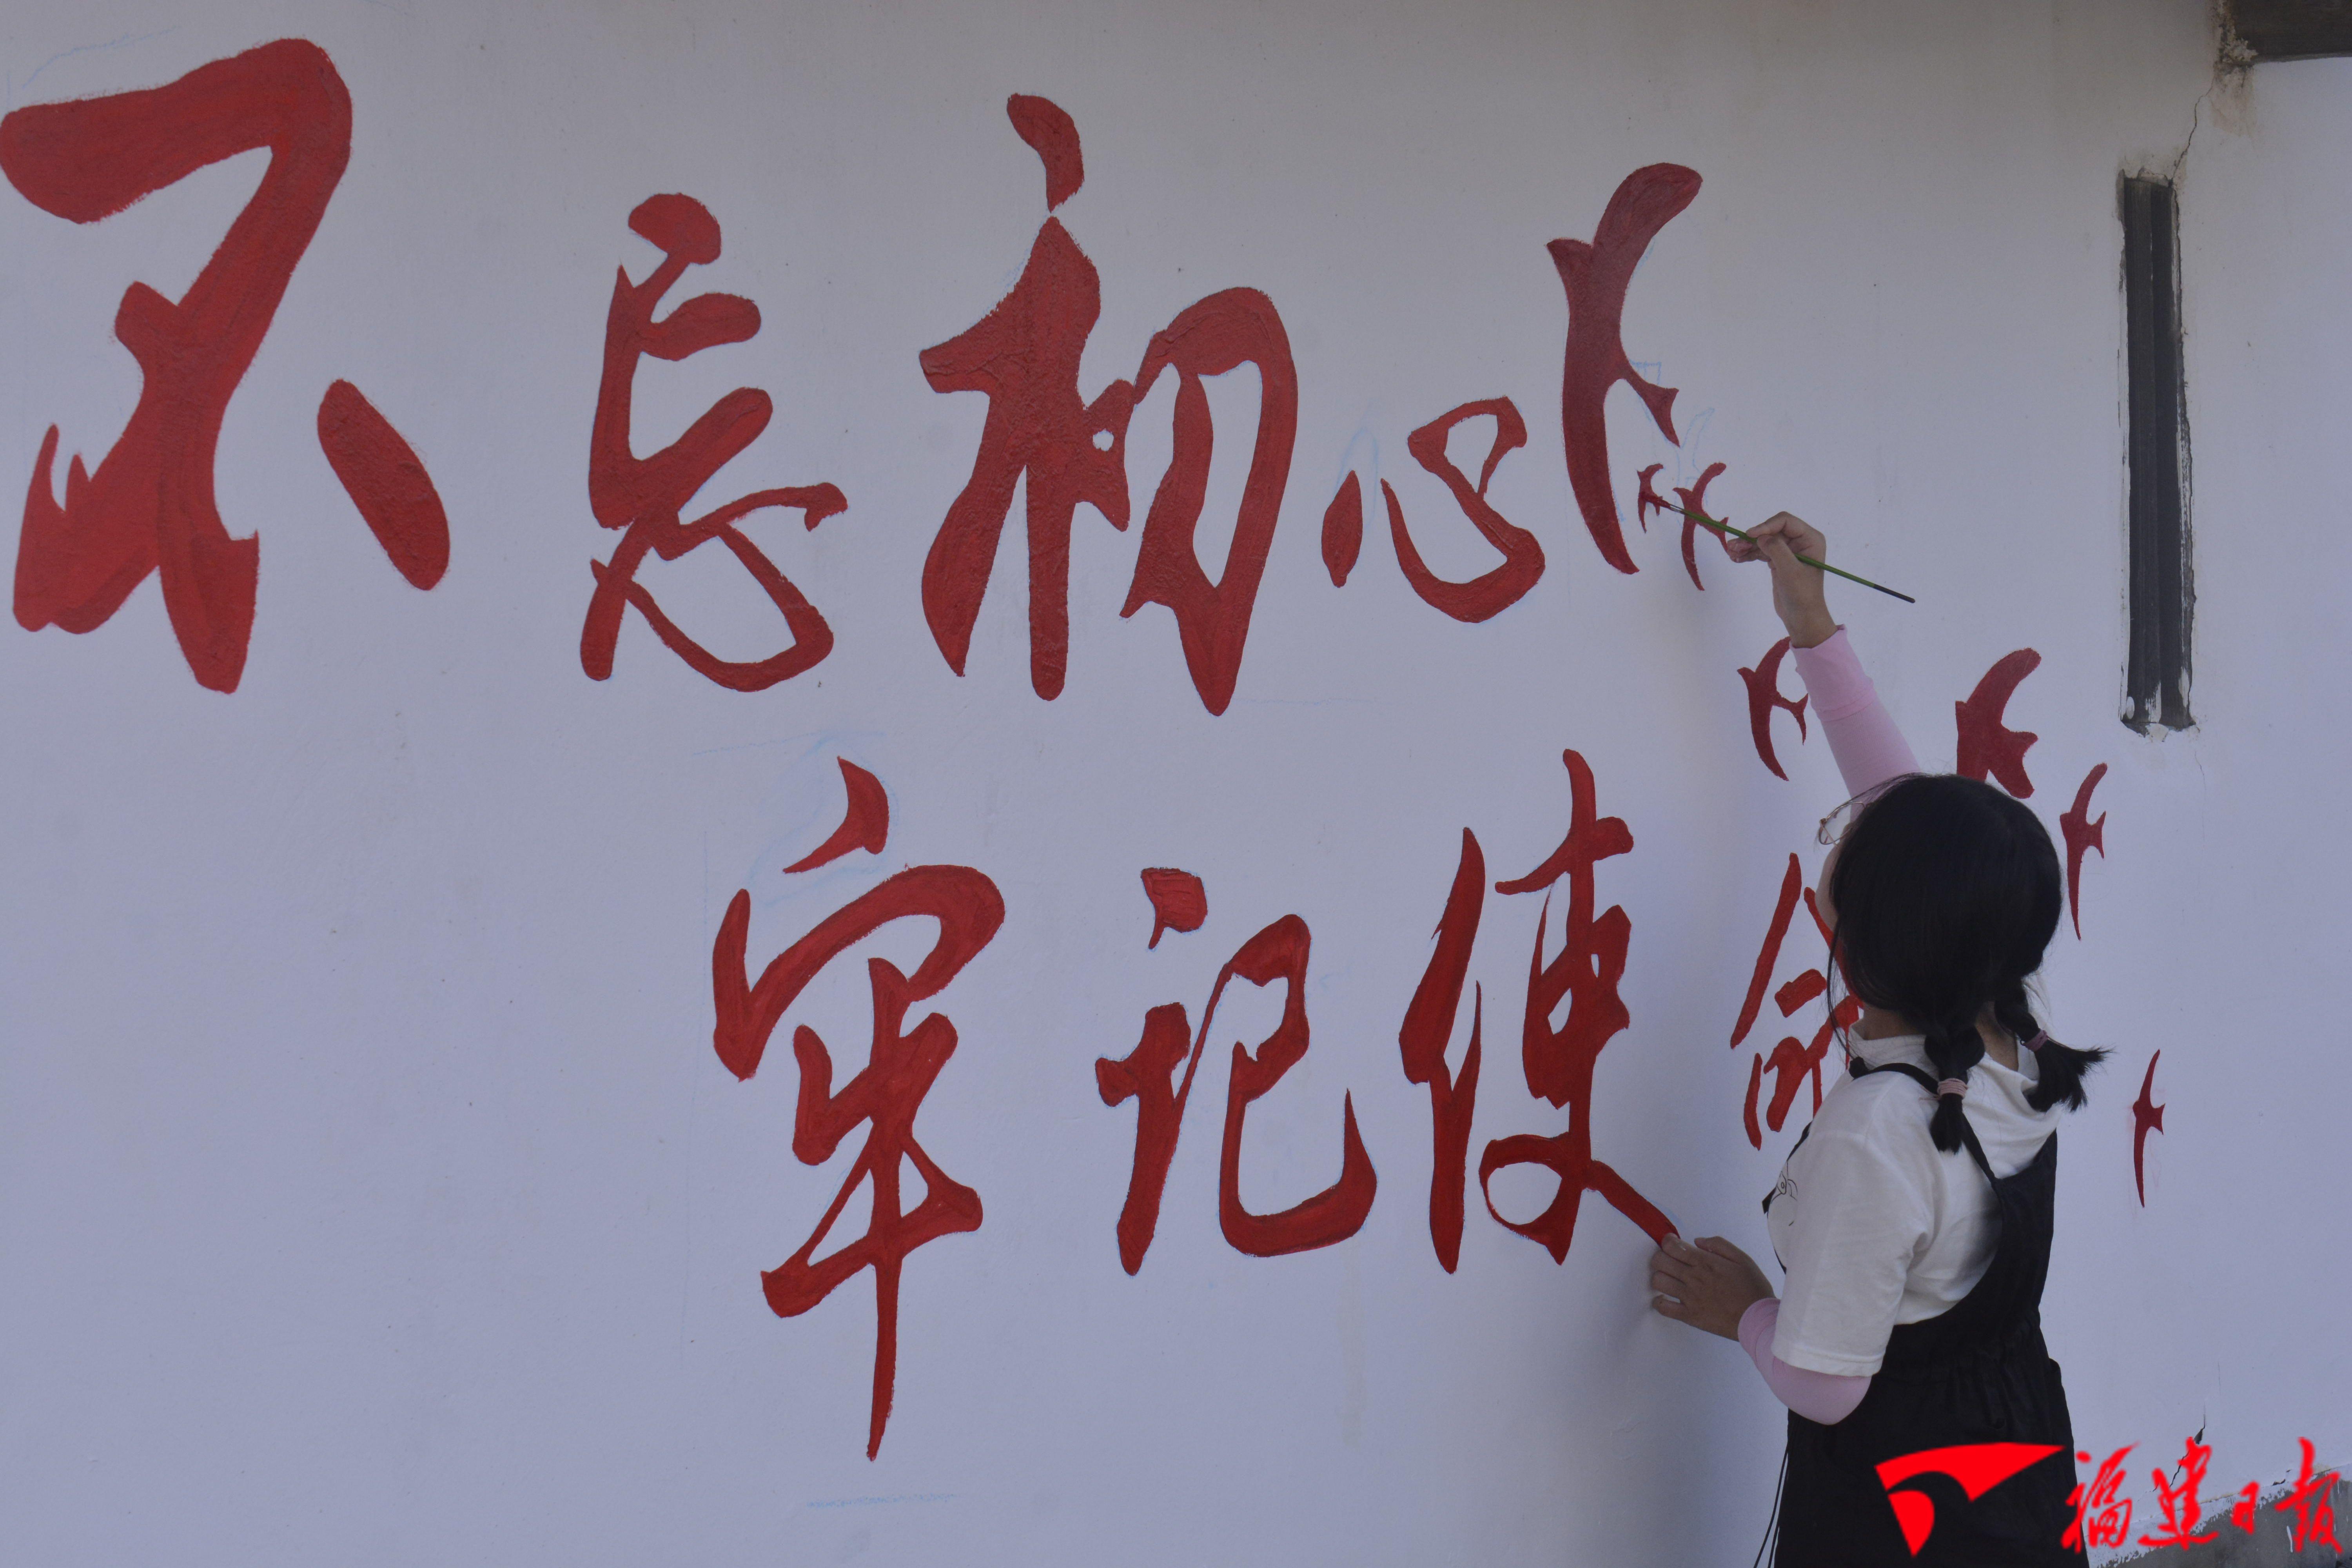 不忘初心
牢记使命
福建日报